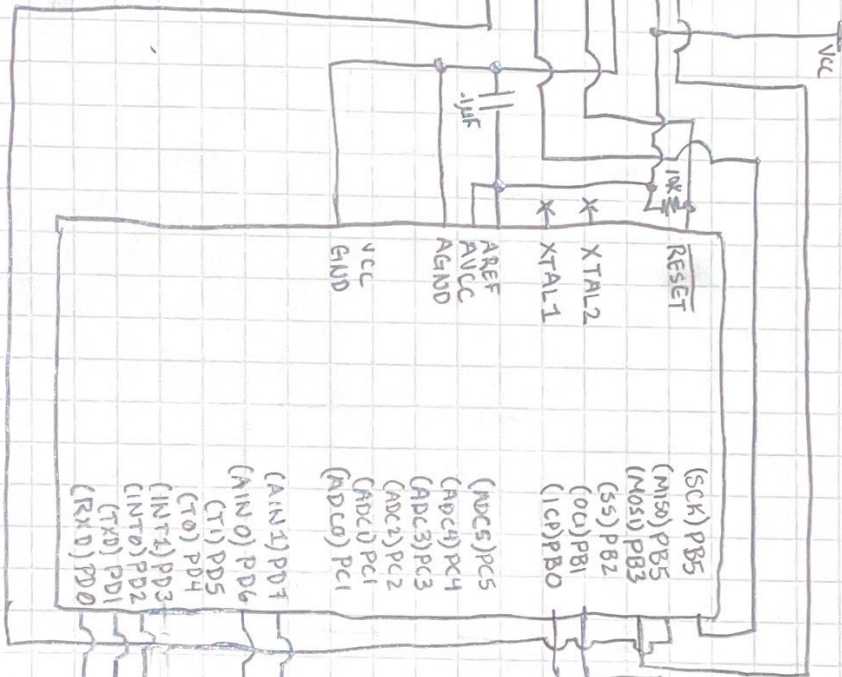 Vcc
10K
.1µF
RESET
XTAL2
XTAL1
AREF
AVCC
AGND
VCC
GND
(SCK)PB5
(MISO)PB5
(MOSI)PB3
(SS)PB2
(OC1)PB1
(ICP)PB0
(ADC5)PC5
(ADC4)PC4
(ADC3)PC3
(ADC2)PC2
(ADC1)PC1
(ADC0)PC1
(AIN1)PD7
(AIN0)PD6
(T1)PD5
(T0)PD4
(INT1)PD3
(INT0)PD2
(TXD)PD1
(RXD)PD0